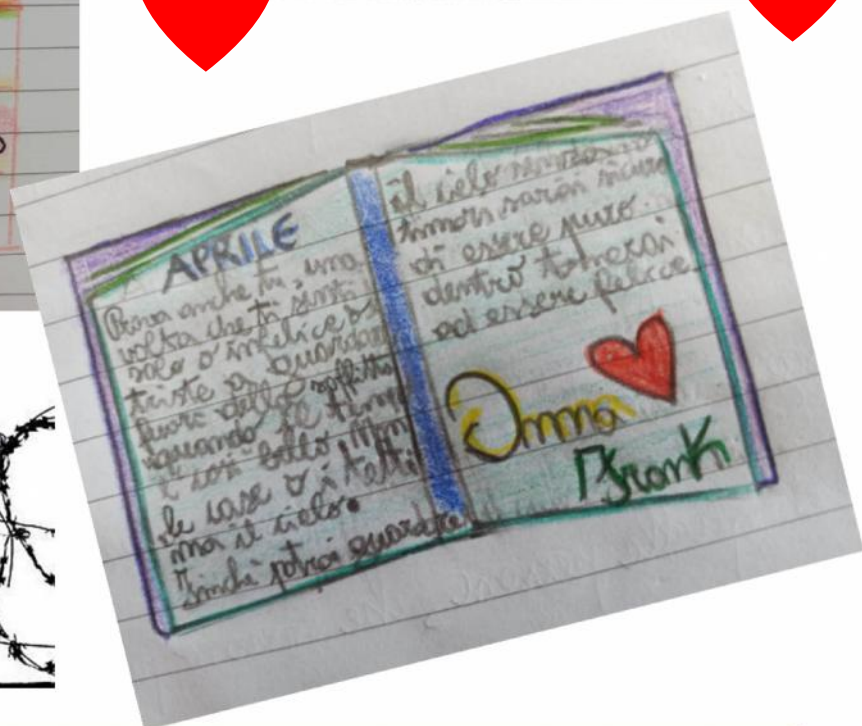 APRILE
Prova anche tu, una
volta che ti senti
solo o infelice o
triste a guardare
fuori dalla soffitta
quando il tempo
è così bello. Non
le case o i tetti
ma il cielo.
Finché potrai guardare
il cielo senza
timori sarai sicuro
di essere puro.
dentro tornerai
ad essere felice.
Anna
Frank